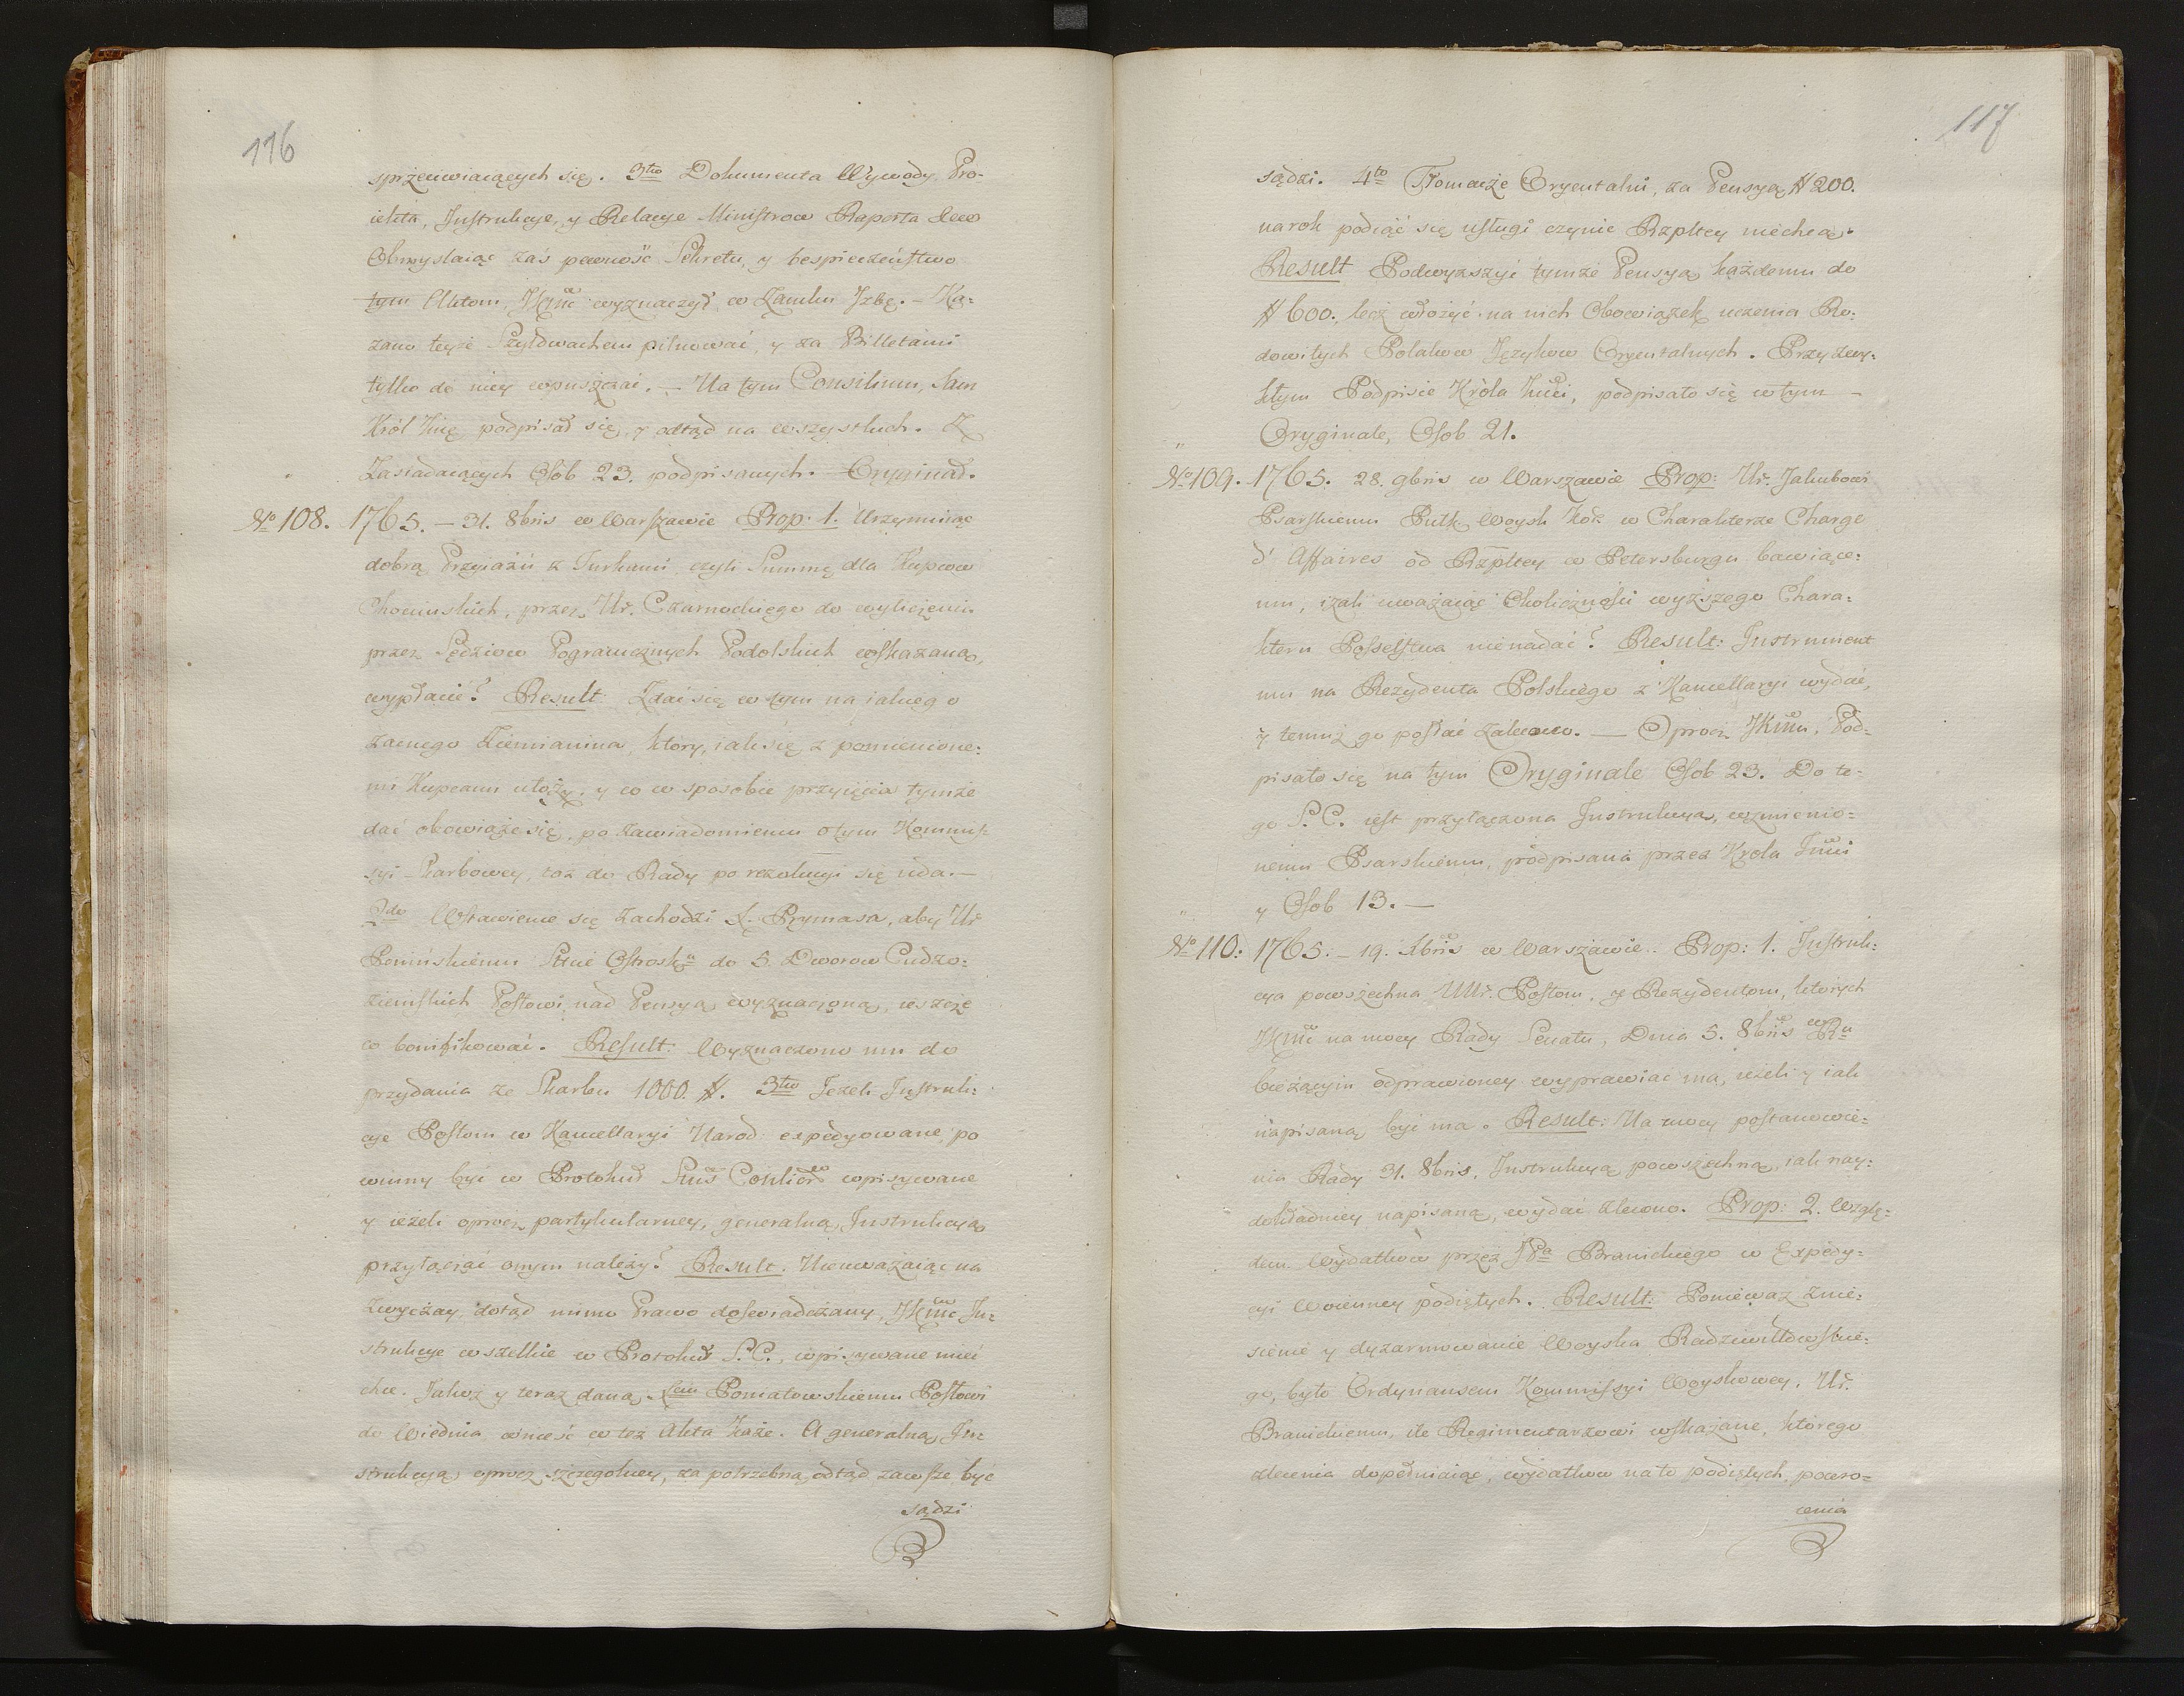 116
sprzeciwiaiących się. 3tio Dokumenta Wywody, Pro-
iekta, Instrukcye, y Relacye Ministrow Raporta &c&c
Obmyslaiąc zaś pewność Sekretu, y bespieczeństwo
tym Aktom, JKmć wyznaczył w Zamku Jzbę. – Ka=
zano teyże Szyldwachem pilnować, y za Billetami
tylko do niey wpuszczać. – Na tym Consilium, Sam
Król Jmć podpisał się, y odtąd na wszystkich. Z
Zasiadaiących Osób 23. podpisanych. Oryginał.
No 108. 1765. – 31. 8bris w Warszawie Prop: 1. Utrzymuiąc
dobrą Przyiaźń z Turkami czyli Summę dla Kupcow
Chocimskich, przez Ur. Czarnockiego do wyliczenia
przez Sędziow Pogranicznych Podolskich wskazaną,
wypłacić? Result: Zdać się w tym na iakiego
zacnego Ziemianina, który, iak się z pomienione=
mi Kupcami ułoży, y co w sposobie przyięcia tymże
dać obowiąże się, po zawiadomieniu o tym Kommis=
syi Skarbowey, toż do Rady po rezolucyi się uda. –
2do Wstawienie się zachodzi X. Prymasa, aby Ur
Ponińskiemu Stcie Ostrosku do 5. Dworow Cudzo=
ziemskich Posłowi, nad Pensyą wyznaczoną, ieszcze
co bonifikować. Result: Wyznaczono mu do
przydania ze Skarbu 1000. #. 3tio Jeżeli Instruk=
cye Posłom w Kancellaryi Narod: expedyowane po
winny być w Protokuł Stus Consiliow wpisywane
y ieżeli oprocz partykularney, generalną Instrukcyą
przyłączać onym należy? Result. Nieuważaiąc na
zwyczay dotąd mimo Prawo doświadczany, JKmć In=
strukcye wszelkie w Protokuł S.C. wpisywane mieć
chce. Jakoż y teraz daną Xciu Poniatowskiemu Posłowi
do Wiednia wnieść w też Akta Każe. A generalną In=
strukcyą oprocz szczegolney, za potrzebną odtąd zawsze być
sądzi
117
sądzi. 4to Tłomacze Oryentalni, za Pensyą # 200.
na rok podiąć się usługi czynić Rzpltey niechcą.
Result Podwyższyć tymże Pensyą każdemu do
# 600. lecz włożyć na nich Obowiązek uczenia Ro=
dowitych Polakow Językow Oryentalnych. Przy zwy=
kłym Podpisie Króla Jmci, podpisało się w tym –
Oryginale, Osob 21.
No 109. 1765. 28. 9bris w Warszawie Prop: Ur. Jakubowi
Psarskiemu Pułk. Woysk Kor: w Charakterze Chargé
d' Affaires od Rzpltey w Petersburgu bawiące=
mu, izali uważaiąc Okoliczności wyższego Chara=
kteru Posselstwa nienadać? Result: Instrument
mu na Rezydenta Polskiego z Kancellaryi wydać,
y temuż go posłać zalecono. — Oprocz JKmci, Pod=
pisało się na tym Oryginale Osob 23. Do te-
go S.C. iest przyłączona Instrukcya, wzmienio=
nemu Psarskiemu, podpisana przez Krola Jmci
y Osob 13. —
No 110: 1765. – 19. Xbris w Warszawie.. Prop: 1. Instruk=
cya powszechna UUr. Posłom, y Rezydentom, ktorych
JKmć na mocy Rady Senatu, Dnia 5. 8bris w Ru
bieżącym odprawioney wyprawiać ma, ieżeli y iak
napisaną być ma. Result: Na mocy postanowie=
nia Rady 31. 8bris, Instrukcyą powszechną, iak nay=
dokładniey napisaną, wydać zlecono. Prop: 2. Wzglę=
dem Wydatkow przez JPa Branickiego w Expedy=
cyi Woienney podiętych. Result: Ponieważ znie=
sienie y dyzarmowanie Woyska Radziwiłłowskie=
go, było Ordynansem Kommissyi Woyskowey, Ur.
Branickiemu, ile Regimentarzowi wskazane, ktorego
zlecenia dopełniaiąc, wydatkow na to podiętych, powro=
cenia